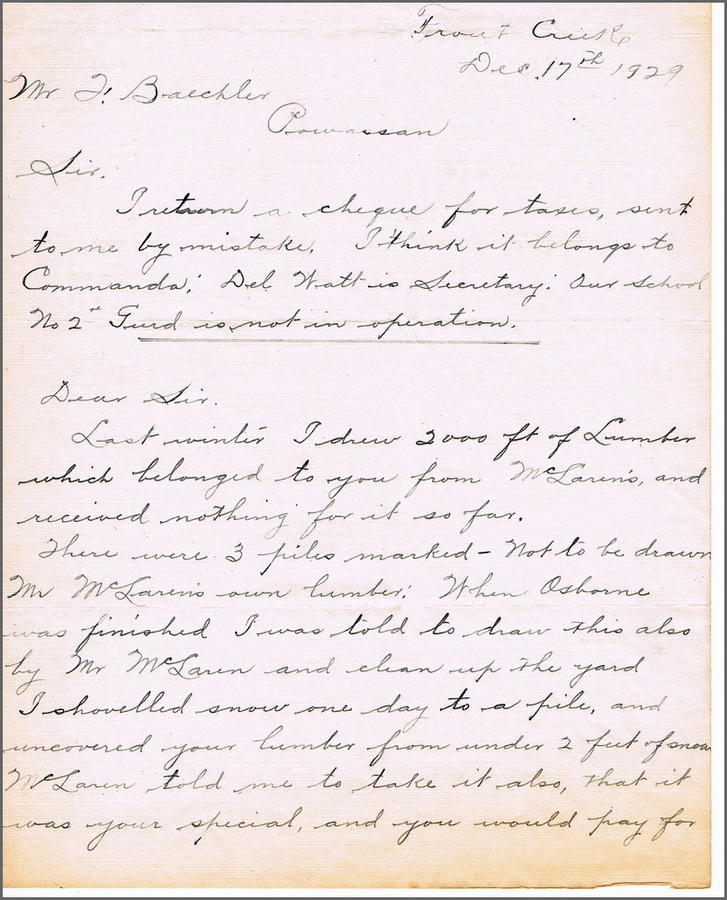 Trout Creek
Dec. 17th 1929
Mr F. Baechler
Powassan
Sir.
I return a cheque for taxes, sent
to me by mistake. I think it belongs to
Commanda. Del Watt is Secretary. Our School
No 2 Gurd is not in operation.
Dear Sir.
Last winter I drew 2000 ft of Lumber
which belonged to you from McLaren's, and
received nothing for it so far.
There were 3 piles marked - Not to be drawn
Mr McLaren's own lumber. When Osborne
was finished I was told to draw this also
by Mr McLaren and clean up the yard
I shovelled snow one day to a pile, and
uncovered your lumber from under 2 feet of snow
McLaren told me to take it also, that it
was your special, and you would pay for